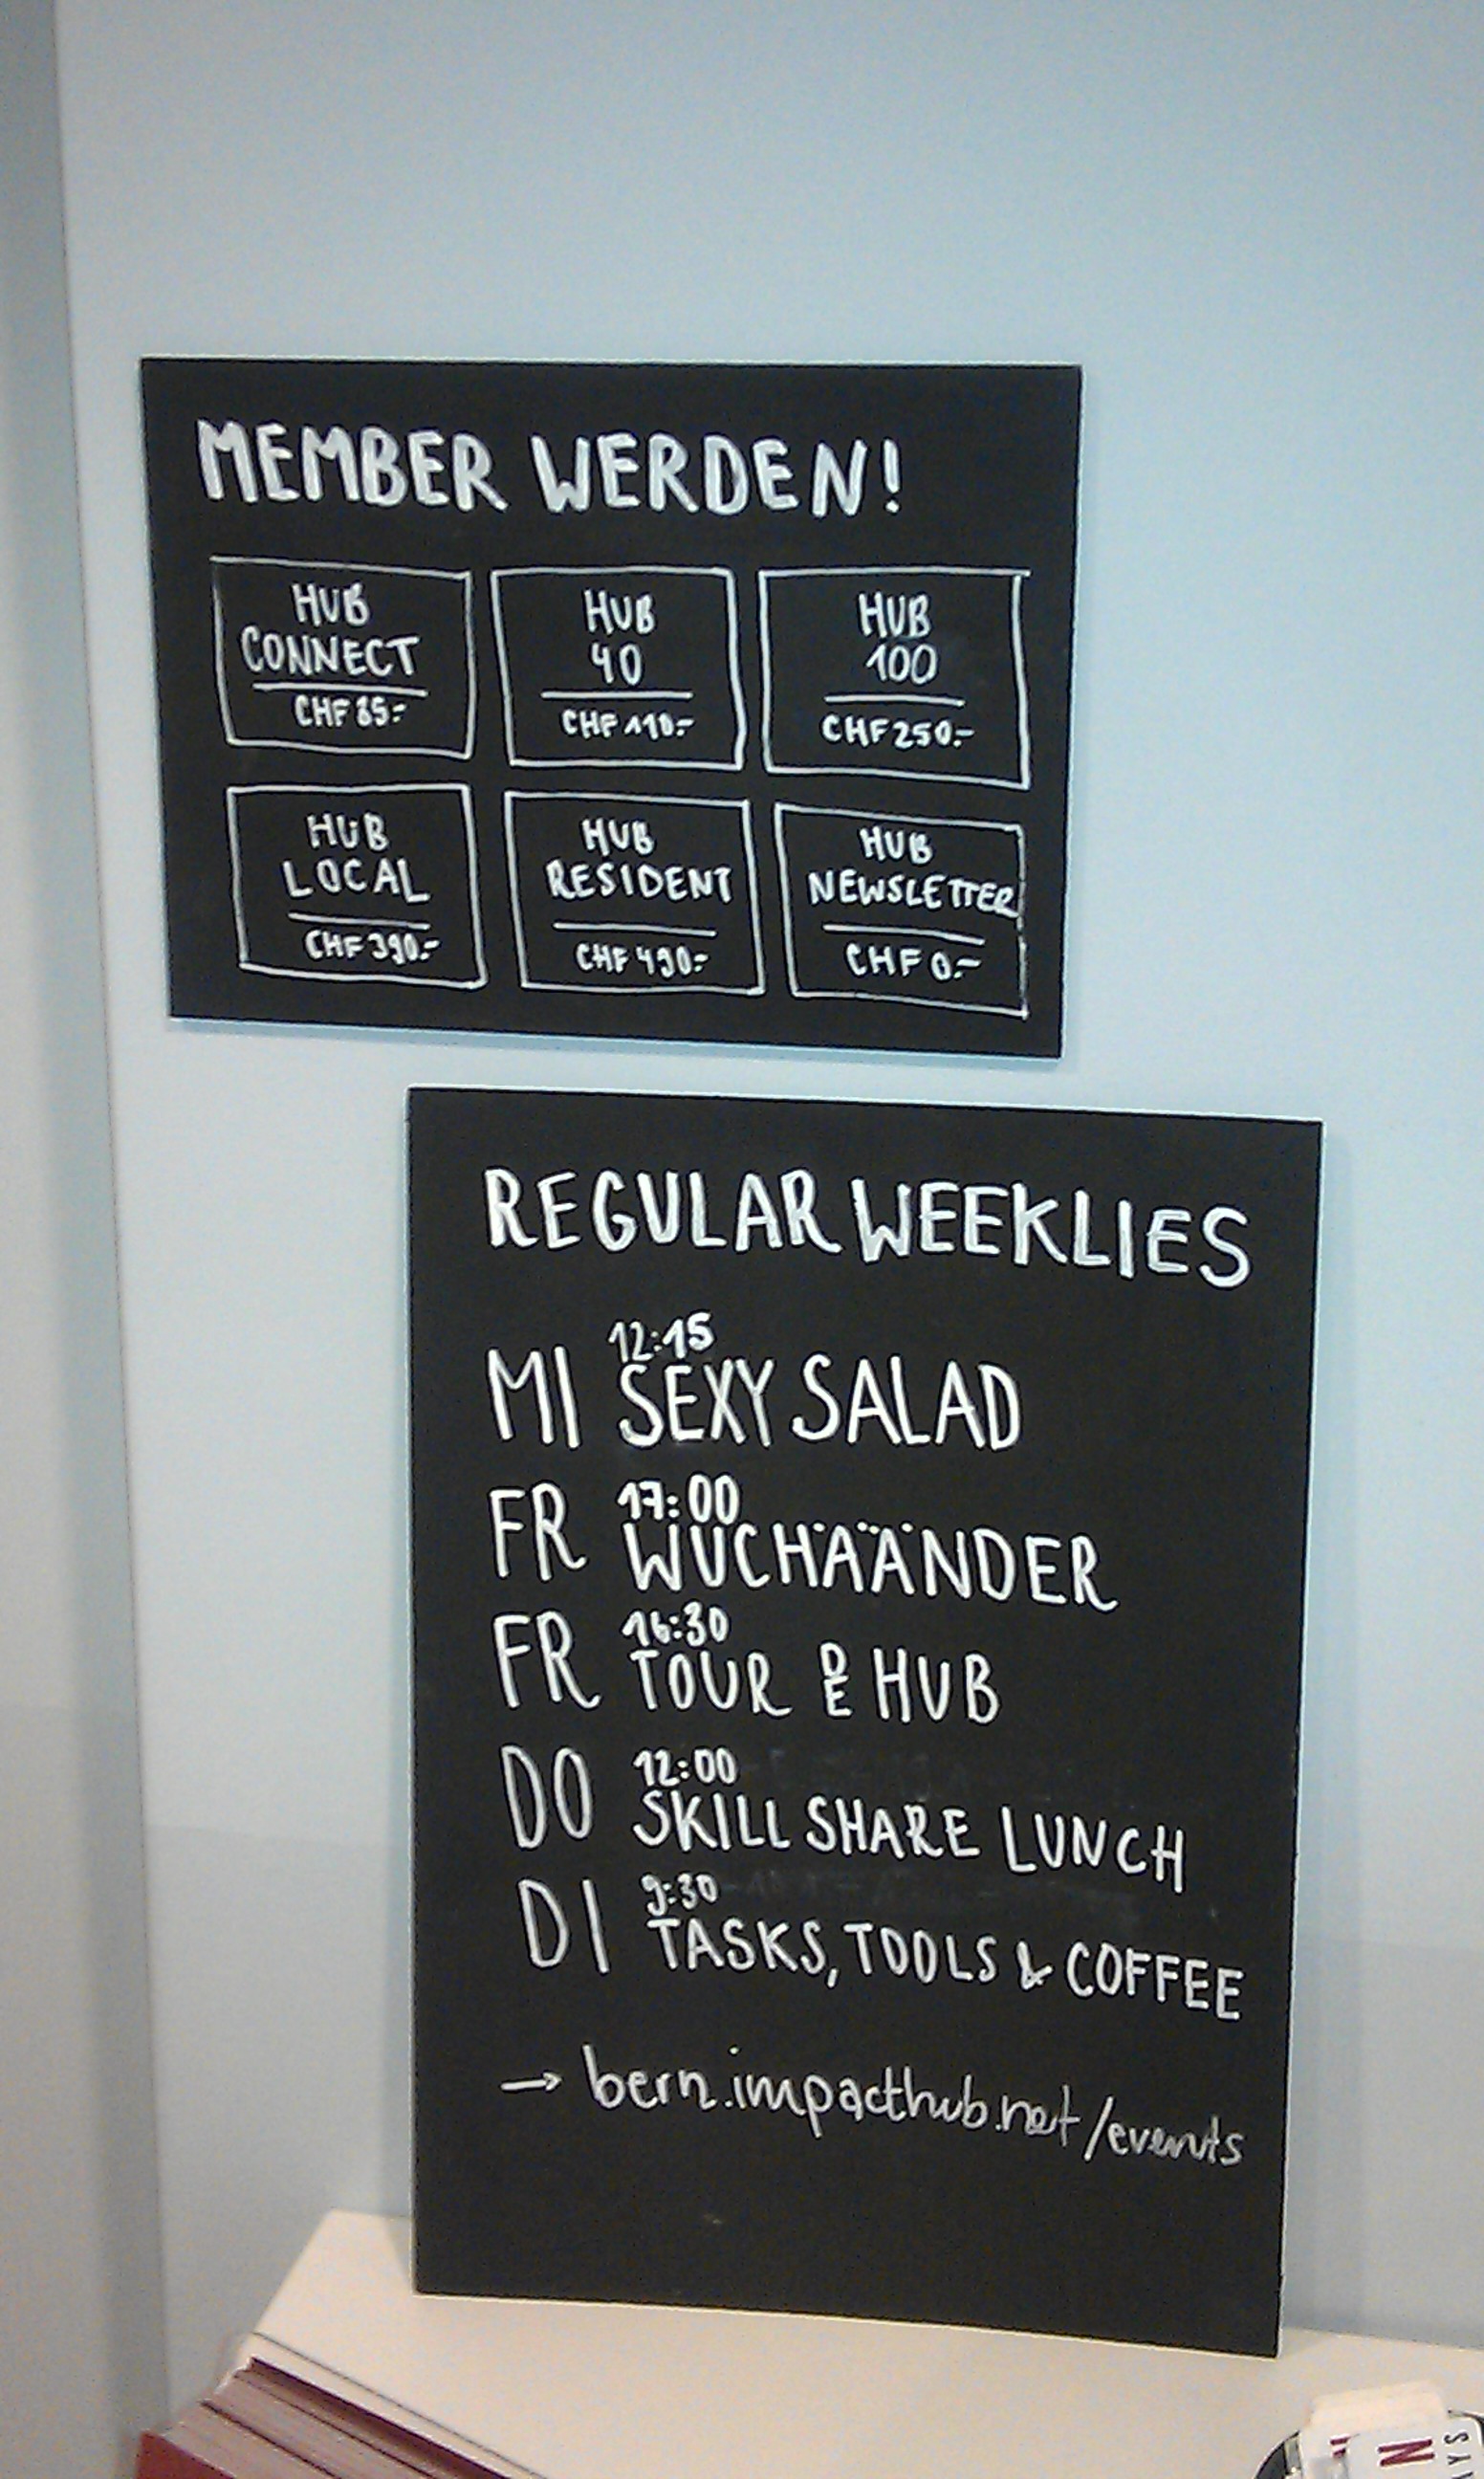 MEMBER WERDEN!
HUB
CONNECT
CHF 35.-
HUB
40
CHF 110.-
HUB
100
CHF 250.-
HUB
LOCAL
CHF 390.-
HUB
RESIDENT
CHF 490.-
HUB
NEWSLETTER
CHF 0.-
REGULAR WEEKLIES
12:15
MI SEXY SALAD
17:00
FR WUCHÄÄNDER
16:30
FR TOUR DE HUB
12:00
DO SKILL SHARE LUNCH
9:30
DI TASKS, TOOLS & COFFEE
→ bern.impacthub.net/events